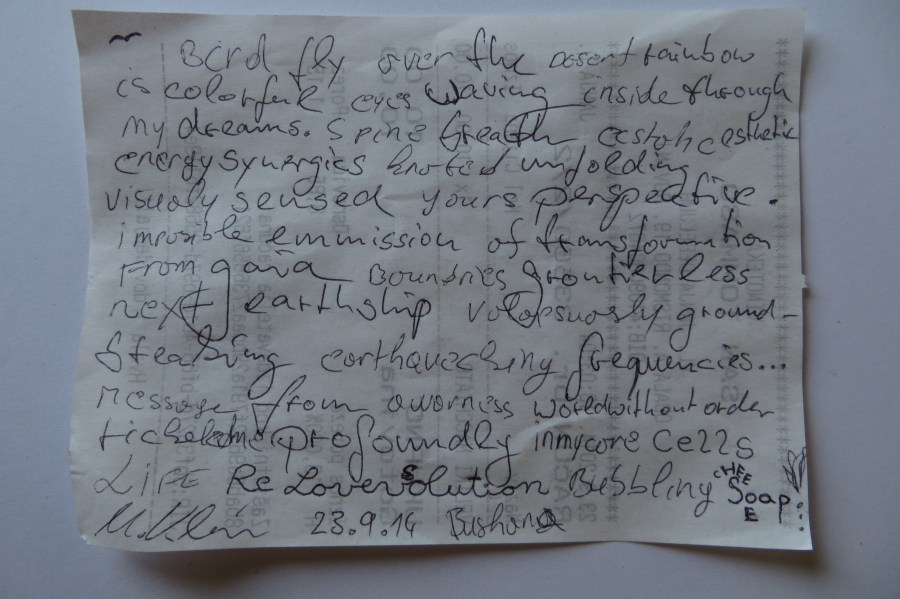 Bird fly over the desert rainbow
is colorful eyes waving inside through
my dreams. Spine breath aesthetic
energy synergies knoted unfolding
visualy sensed yours perspective.
imposible emmission of transformation
From gaia Boundries frontierless
next earthship volopsuously ground-
breaking earthqueaking frequencies...
Message from awarness worldwithoutorder
profoundly inmycore cells
LiFE ReLovesolution Bubbling CHEESE Soap
23.9.14